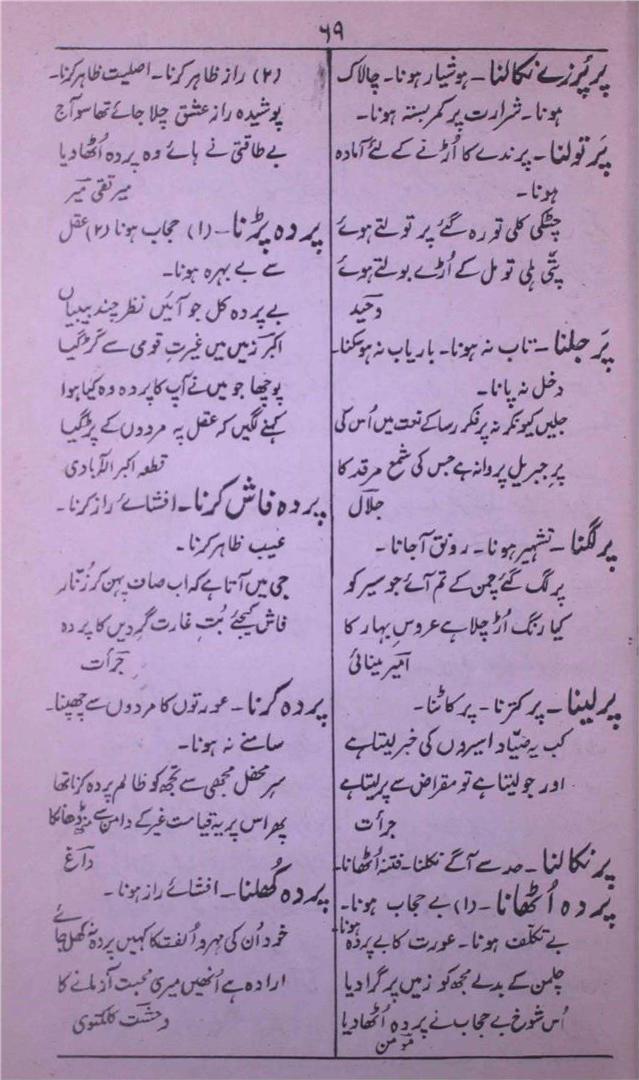 ۶۹
پر پُرزے نکالنا۔ ہوشیار ہونا۔ چالاک
ہونا۔ شرارت پر کمر بستہ ہونا۔
پَر تولنا۔ پرندے کا اُڑنے کے لئے آمادہ
ہونا۔
چٹکی کلی تو رہ گئے پر تولتے ہوئے
پتّی ہلی تو مل کے اُڑے بولتے ہوئے
وحید
پَر جلنا۔ تاب نہ ہونا۔ باریاب نہ ہو سکنا۔
دخل نہ پانا۔
جلیں کیونکر نہ پر فکر رسا کے نعت میں اُس کی
پرِ جبریل پروانہ ہے جس کی شمع مرقد کا
جلال
پر لگنا۔ تشہیر ہونا۔ رونق آ جانا۔
پر لگ گئے چمن کے تم آئے جو سیر کو
کیا رنگ اُڑ چلا ہے عروسِ بہار کا
امیر مینائی
پر لینا۔ پر کترنا۔ پر کاٹنا۔
کب یہ صیّاد اسیروں کی خبر لیتا ہے
اور جو لیتا ہے تو مقراض سے پر لیتا ہے
جرأت
پر نکالنا۔ حد سے آگے نکلنا۔ فتنہ اُٹھانا۔
پردہ اُٹھانا۔ (۱) بے حجاب ہونا۔
بے تکلف ہونا۔ عورت کا بے پردہ ہونا۔
چلمن کے بدلے مجھ کو زمیں پر گرا دیا
اُس شوخ بے حجاب نے پردہ اُٹھا دیا
مومن
(۲) راز ظاہر کرنا۔ اصلیت ظاہر کرنا۔
پوشیدہ راز عشق چلا جائے تھا سو آج
بے طاقتی نے ہائے وہ پردہ اُٹھا دیا
میر تقی میر
پردہ پڑنا۔ (۱) حجاب ہونا (۲) عقل
سے بے بہرہ ہونا۔
بے پردہ کل جو آئیں نظر چند بیبیاں
اکبر زمیں میں غیرتِ قومی سے گڑ گیا
پوچھا جو میں نے آپ کا پردہ وہ کیا ہوا
کہنے لگیں کہ عقل پہ مردوں کے پڑ گیا
قطعہ اکبر الٰہ آبادی
پردہ فاش کرنا۔ افشائے راز کرنا۔
عیب ظاہر کرنا۔
جی میں آتا ہے کہ اب صاف پہن کر زنّار
فاش کیجئے بُتِ غارت گرِ دیں کا پردہ
جرأت
پردہ کرنا۔ عورتوں کا مردوں سے چھپنا۔
سامنے نہ ہونا۔
سرِ محفل مجھی سے تجھ کو ظالم پردہ کرنا تھا
پھر اس پر یہ قیامت غیر کے دامن سے منہ ڈھانکا
داغ
پردہ کُھلنا۔ افشائے راز ہونا۔
خود اُن کی مہر و اُلفت کا کہیں پردہ نہ کھل جائے
ارادہ ہے اُنھیں میری محبت آزمانے کا
وحشت کلکتوی